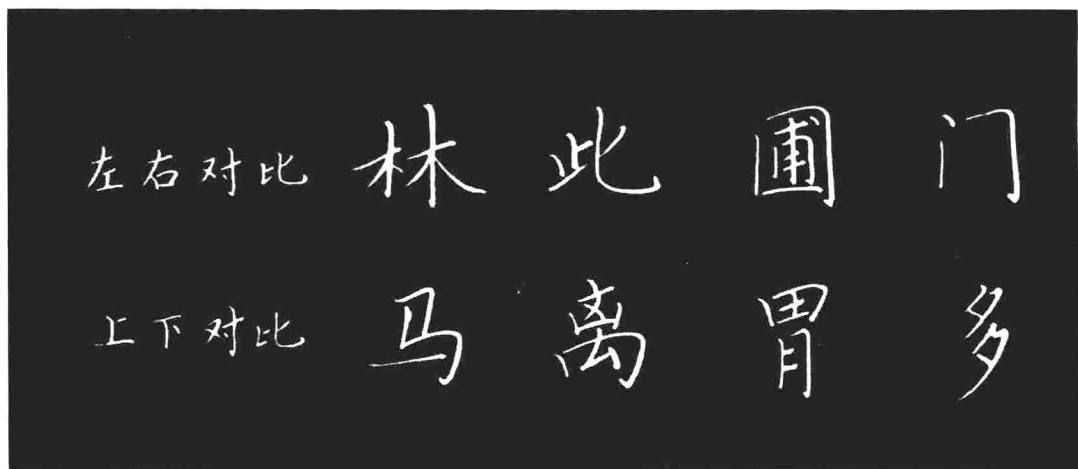 左右对比 林 此 圃 门
上下对比 马 离 胃 多